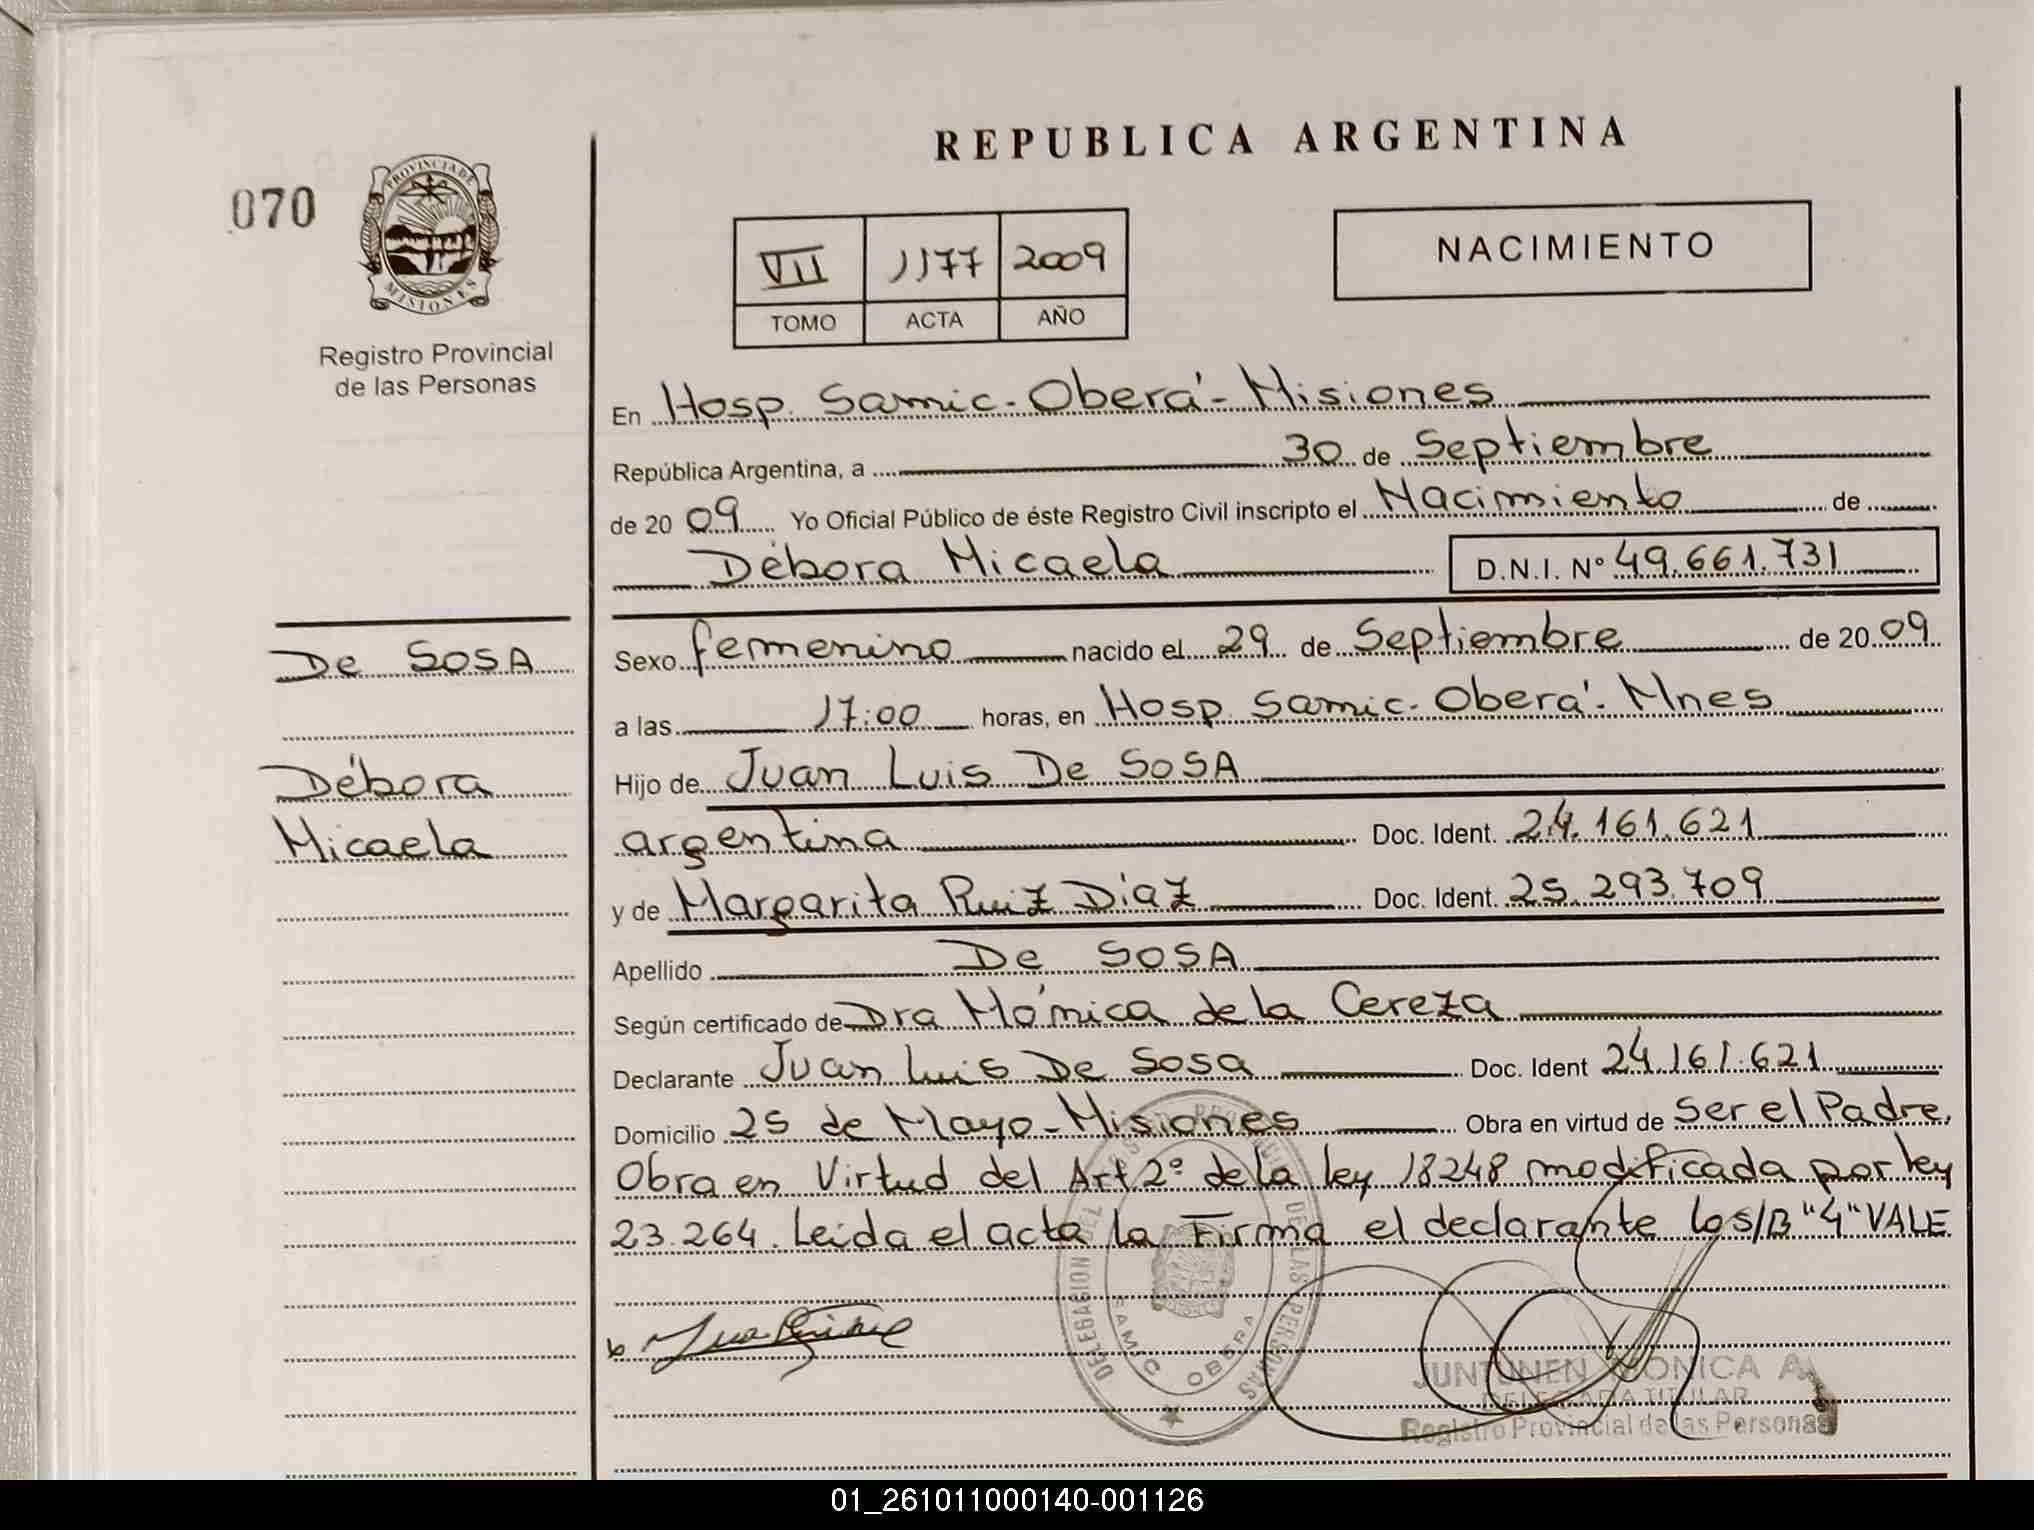 REPUBLICA ARGENTINA
070
PROVINCIA DE
MISIONES
Registro Provincial
de las Personas
VII 1177 2009
TOMO ACTA AÑO
NACIMIENTO
En Hosp. Samic - Oberá - Misiones
República Argentina, a 30 de Septiembre
de 20 09 Yo Oficial Público de éste Registro Civil inscripto el Nacimiento de
Débora Micaela D.N.I. Nº 49.661.731
De SOSA
Débora
Micaela
Sexo femenino nacido el 29 de Septiembre de 20 09
a las 17:00 horas, en Hosp. Samic - Oberá - Mnes
Hijo de Juan Luis De SOSA
argentina Doc. Ident. 24.161.621
y de Margarita Ruiz Díaz Doc. Ident. 25.293.709
Apellido De SOSA
Según certificado de Dra Mónica de la Cereza
Declarante Juan Luis De Sosa Doc. Ident 24.161.621
Domicilio 25 de Mayo - Misiones Obra en virtud de Ser el Padre.
Obra en Virtud del Art 2º de la ley 18248 modificada por ley
23.264. Leída el acta la Firma el declarante lo s/B "4" VALE
DELEGACION DEL REGISTRO PROVINCIAL DE LAS PERSONAS
SAMIC OBERA
JUNTUNEN MONICA A.
DELEGADA TITULAR
Registro Provincial de las Personas
01_261011000140-001126